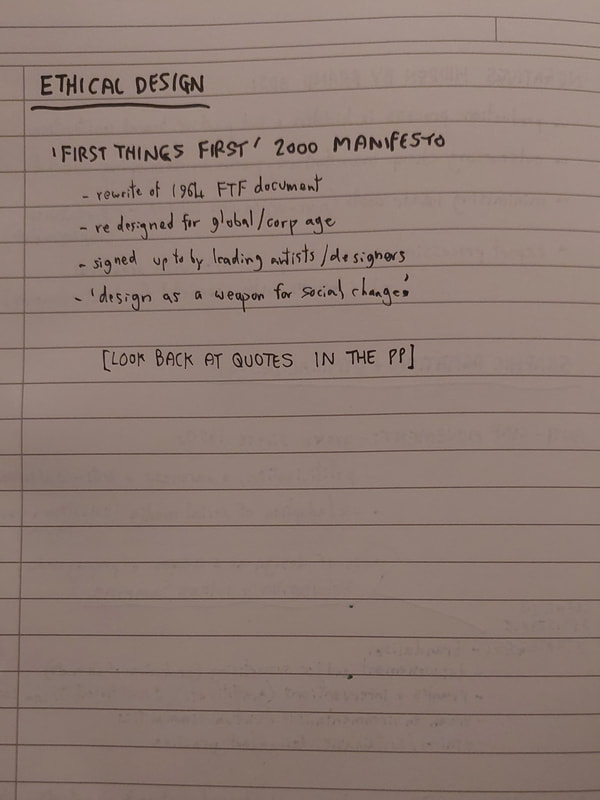 ETHICAL DESIGN
'FIRST THINGS FIRST' 2000 MANIFESTO
- rewrite of 1964 FTF document
- re designed for global/corp age
- signed up to by leading artists/designers
- 'design as a weapon for social change'
[LOOK BACK AT QUOTES IN THE PP]